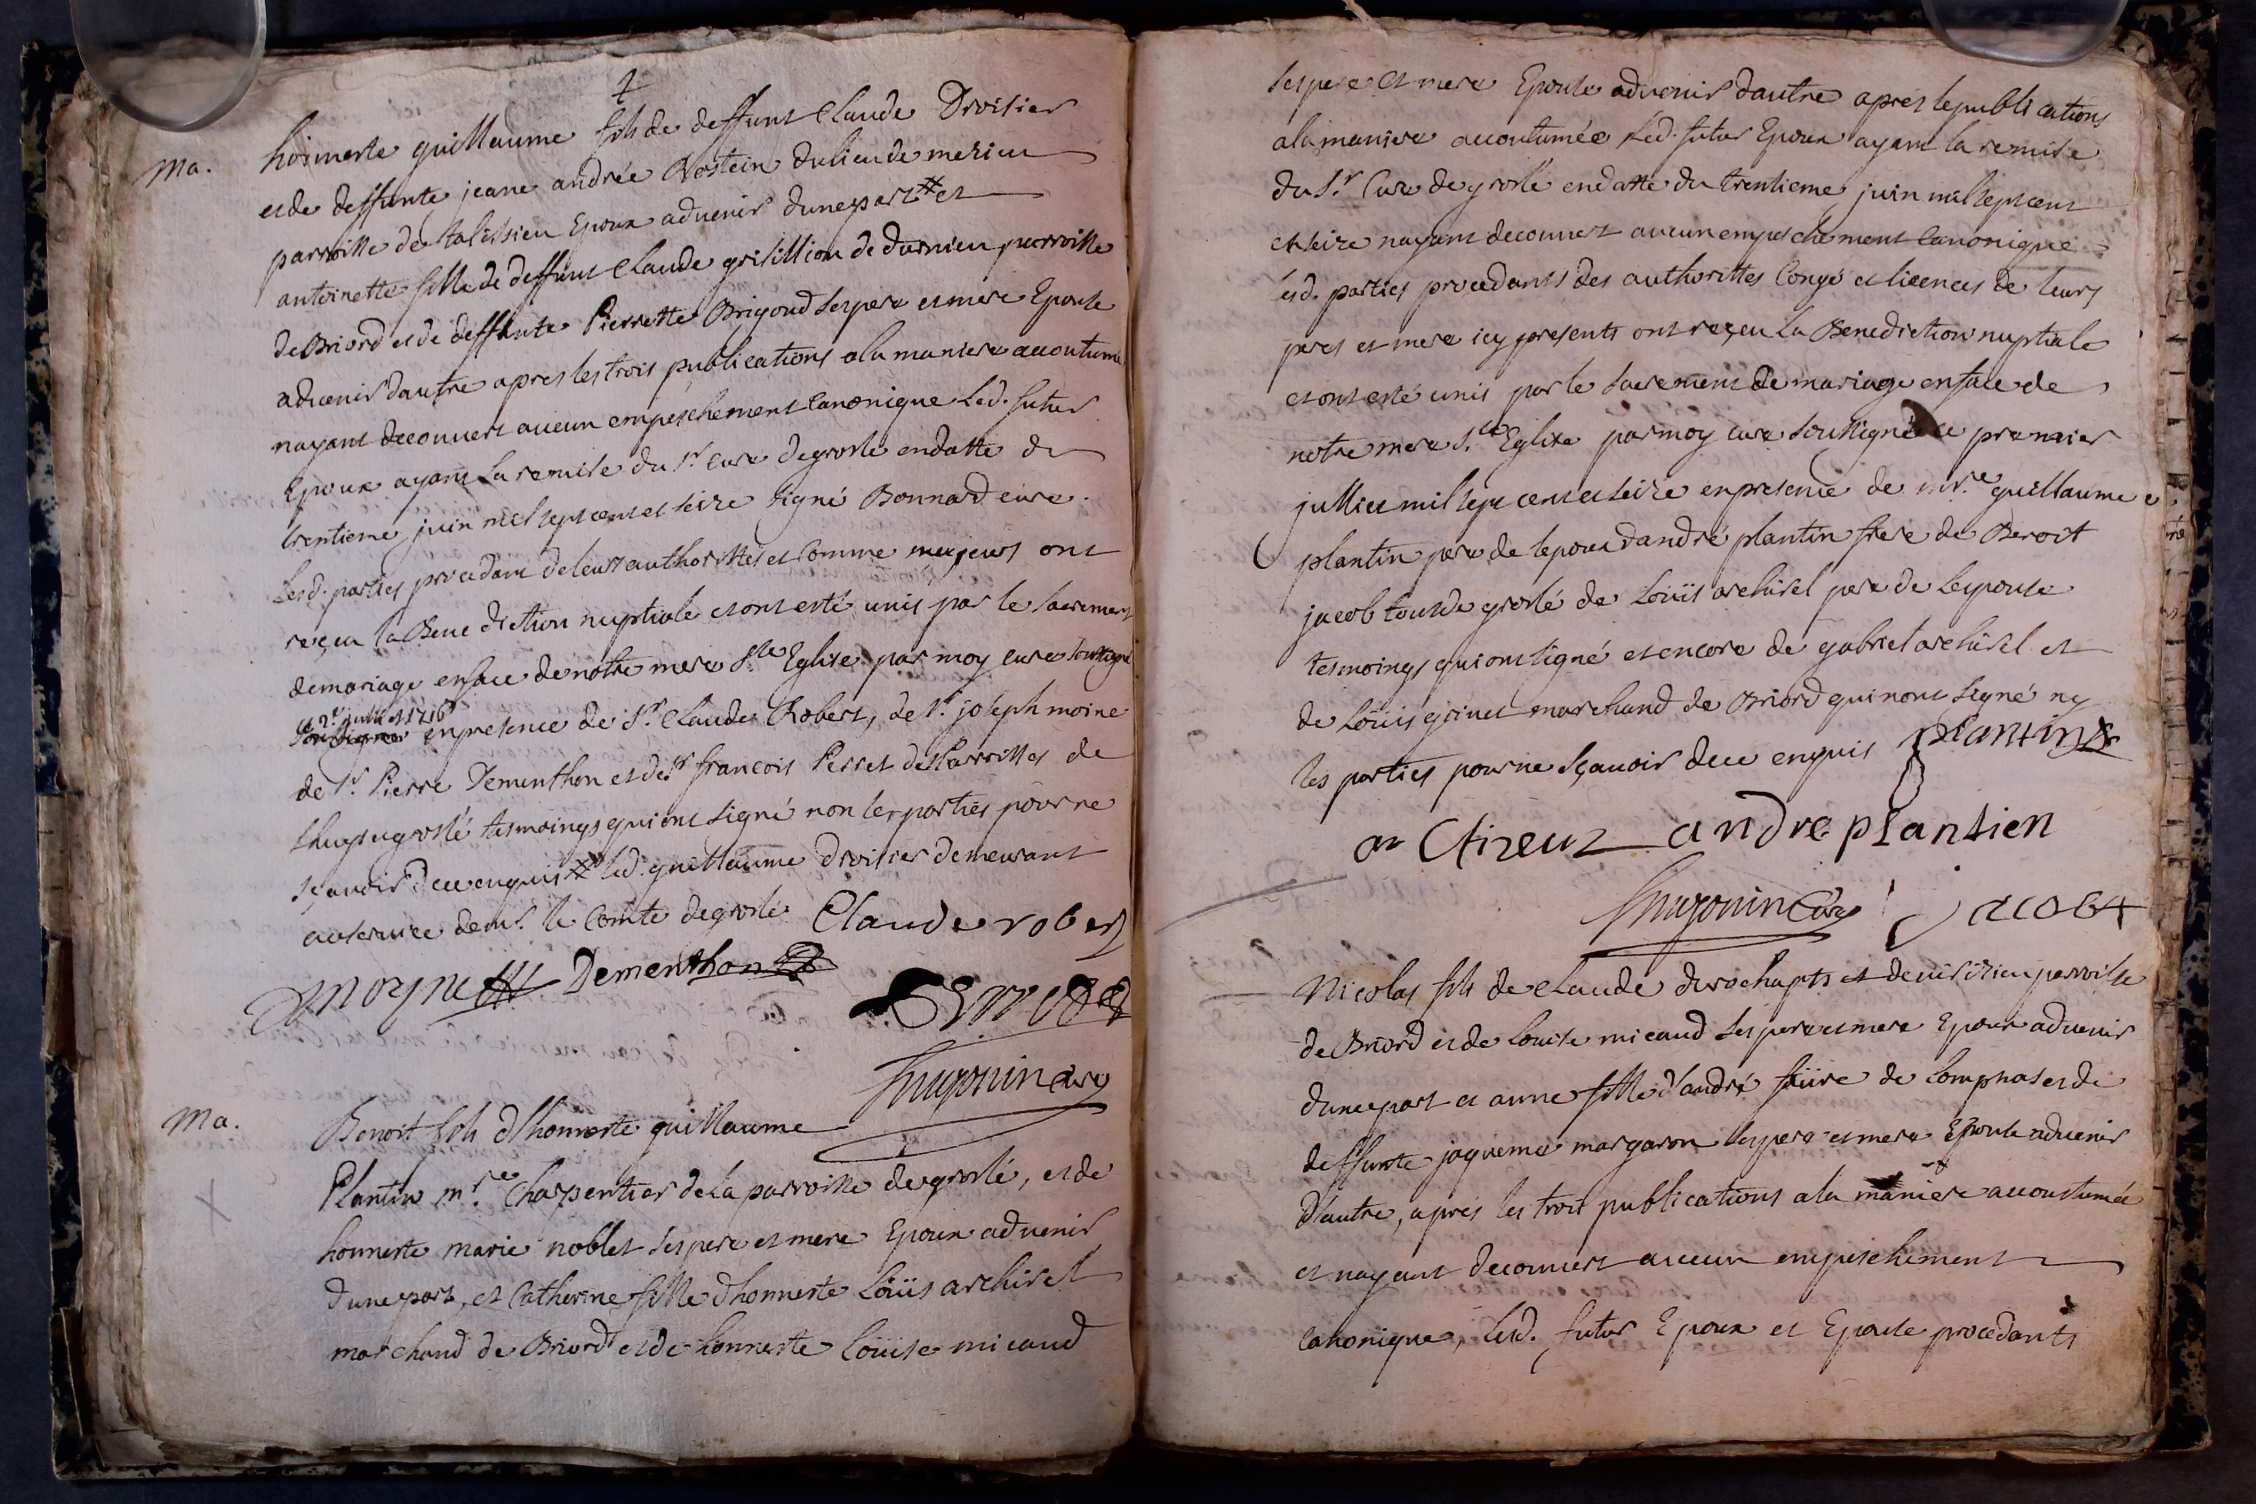 Ma.
honneste guillaume fils de deffunt Claude Droitier
et de deffunte jeane andrée Rostein du lieu de merieu
parroisse de talissieu Epoux advenir dune part # et
antoinette fille de deffunt Claude grisillion de dornieu parroisse
de Briord et de deffunte Pierrette Brigoud ses pere et mere Epouse
advenir dautre apres les trois publications a la maniere accoutumé
nayant decouvert aucun empeschement canonique Led. futur
Epoux ayant la remise du Sr. curé de groslé en datte du
trentieme juin mil sept cent et seize signé Bonnard curé.
Lesd. parties procedant de leurs authorittés et comme majeurs ont
reçeu la Benediction nuptiale et ont esté unis par le sacrement
de mariage en face de notre mere Ste Eglise par moy curé soussigné
ce 2e juillet 1716
en presence de Sr. Claude Robert, de Sr. joseph moine
de Sr. Pierre Dementhon et de Sr francois Perret des Parroisses de
et groslé tesmoings qui ont signé non les parties pour ne
sçavoir de ce enquis # led. guillaume droitier demeurant
au service de mr. le Comte de groslé Claude robert
moyne Dementhon
Perret
hugonin curé
Ma.
Benoit fils d'honneste guillaume
Plantin mre. Charpentier de la parroisse de groslé, et de
honneste marie noblet ses pere et mere Epoux advenir
dune part, et Catherine fille d'honneste Loüis archirel
marchand de Briord et de honneste Loüise micaud
ses pere et mere Epouse advenir dautre apres le publications
a la maniere accoutumée Led. futur Epoux ayant la remise
du Sr. Curé de groslé en datte du trentieme juin mil sept cent
et seize nayant decouvert aucun empeschement canonique
lesd. parties procedants des authorittés Congé et licences de leurs
peres et mere icy presents ont reçeu la Benediction nuptiale
et ont esté unis par le sacrement de mariage en face de
notre mere Ste Eglise par moy curé soussigné ce premier
juillet mil sept cent et seize en presence de mre. guillaume
plantin pere de lepoux dandré plantin frere de Benoit
jacob tous de groslé de Loüis archirel pere de lespouse
tesmoings qui ont signé et encore de gabriel archirel et
de Loüis grinet marchand de Briord qui nont signé ny
les parties pour ne sçavoir de ce enquis plantin
andre plantien
hugonin Curé jacob
Nicolas fils de Claude durochapts et de parroisse
de Briord et de Louise micaud ses pere et mere Epoux advenir
dune part et anne fille d'andré füire de Lompnas et de
deffunte jaquemа margaron ses pere et mere Epouse advenir
D'autre, apres les trois publications a la maniere accoustumée
et nayant decouvert aucun empeschement
canonique, Lesd. futur Epoux et Epouse procedants